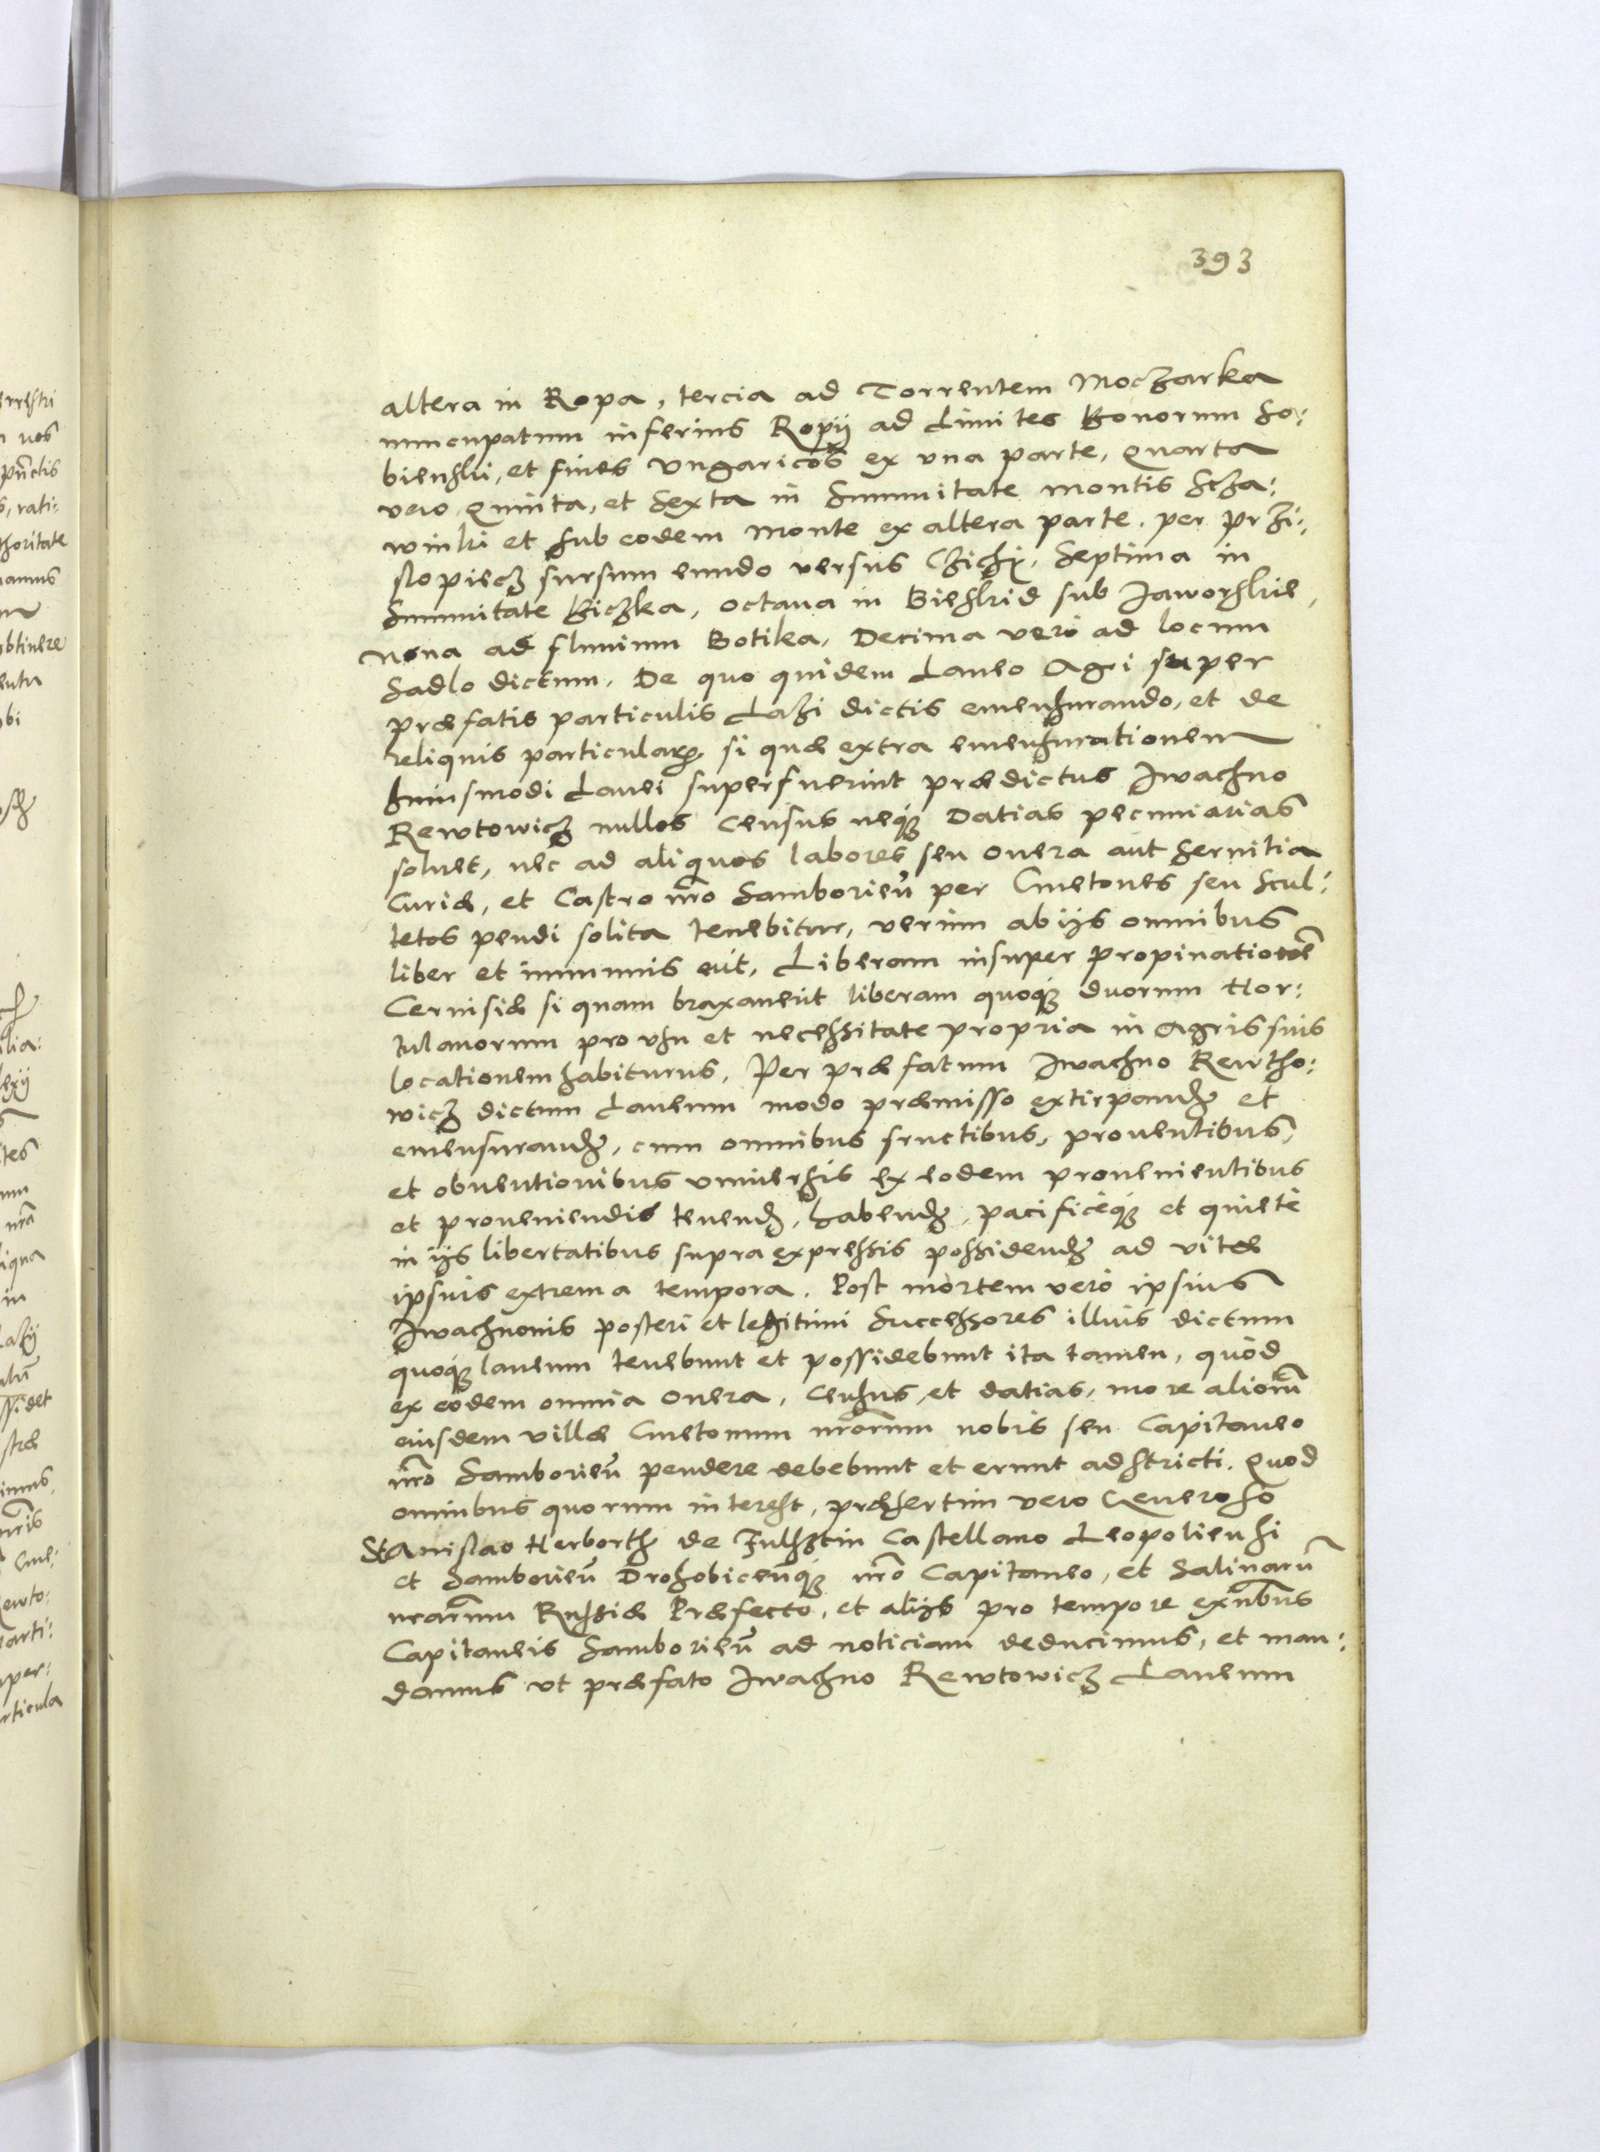 393
altera in Ropa, tercia ad Torrentem Moczarka
nuncupatum inferius Ropÿ ad Limites Bonorum So:
bienski, et fines Vngaricos ex vna parte, Quarta
vero Quinta, et Sexta in Summitate montis Scza:
winki et sub eodem Monte ex altera parte. per Przi:
slopiecz sursum eundo versus Czichi, Septima in
Summitate Kiczka, octaua in Bieskid sub Jaworskie,
Nona ad fluuium Botilka, Decima verò ad locum
Sadlo dictum. De quo quidem Laneo Agri super
præfatis particulis Lazi dictis emensurando, et de
reliquis particularꝫ si quæ extra emensurationem
huiusmodi Lanei superfuerint prædictus Iwachno
Rewtowicz nullos Census neqꝫ Datias pecuniarias
soluet, nec ad aliquos labores seu onera aut seruitia
Curiæ, et Castro nr̄o Samborien̄ per Cmetones seu Scul:
tetos pendi solita tenebitur, verum ab ijs omnibus
liber et immunis erit, Liberam insuper Propinationē
Ceruisiæ si quam braxauerit liberam quoqꝫ duorum Hor:
tulanorum pro vsu et necessitate propria in Agris suis
locationem habiturus, Per præfatum Iwachno Rewtho:
wicz dictum Laneum modo præmisso extirpandꝫ et
emensurandꝫ, cum omnibus fructibus, prouentibus,
et obuentionibus vniuersis ex eodem prouenientibus
et proueniendis tenendꝫ, habendꝫ, pacificèqꝫ et quietè
in ijs libertatibus supra expressis possidendꝫ ad vitæ
ipsius extrema tempora. Post mortem verò ipsius
Iwachnonis posteri et legitimi Successores illius dictum
quoqꝫ laneum tenebunt et possidebunt ita tamen, quòd
ex eodem omnia onera, Census, et datias, more aliorū
eiusdem villæ Cmetonum nr̄orum nobis seu Capitaneo
nr̄o Samborien̄ pendere debebunt et erunt adstricti. Quod
omnibus quorum interest, præsertim vero Generoso
Stanislao Herborth de Fulsztin Castellano Leopoliensi
et Samborien̄ Drohobicen̄qꝫ nr̄o Capitaneo, et Salinarū
nr̄arum Russiæ Præfecto, et alijs pro tempore exn̄tibus
Capitaneis Samborien̄ ad noticiam deducimus, et man:
damus vt præfato Iwachno Rewtowicz Laneum